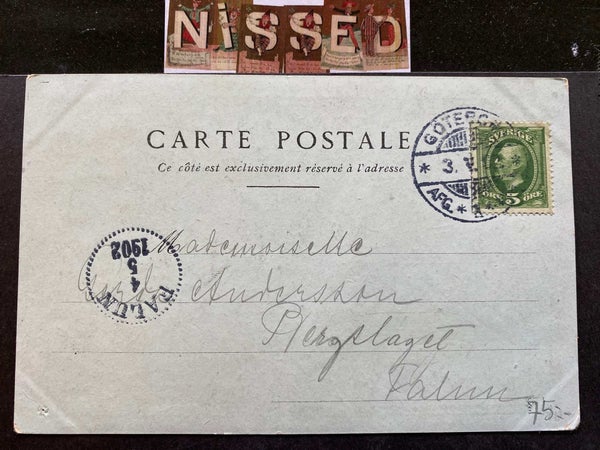 NiSSED
CARTE POSTALE
Ce côté est exclusivement réservé à l'adresse
GÖTEBORG
* 3. V.
AFG. *
SVERIGE
5
ÖRE
FALUN
4
5
1902
Mademoiselle
Gerda Andersson
Bergslaget
Falun
75:-